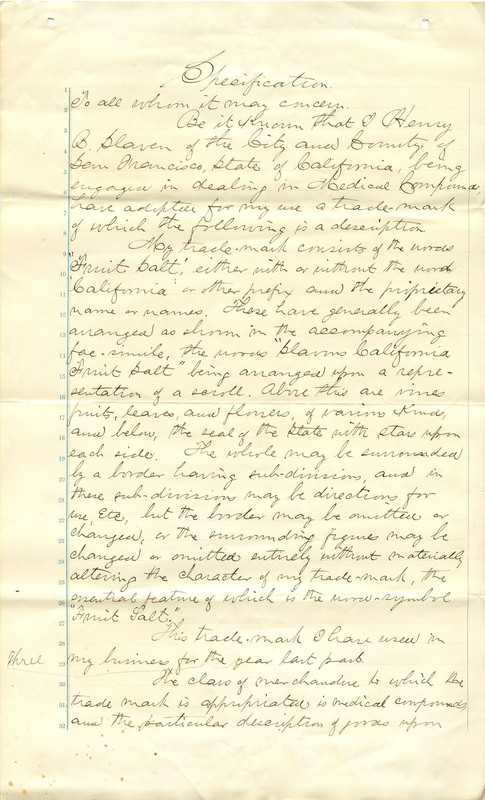 Specification.
To all whom it may concern.
Be it Known that I Henry
B. Slaven of the City and County of
San Francisco, State of California, being
engaged in dealing in Medical Compounds,
have adopted for my use a trade-mark
of which the following is a description
My trade-mark consists of the words
"Fruit Salt", either with or without the word
California or other prefix and the proprietary
name or names. These have generally been
arranged as shown in the accompanying
fac-simile, the words "Slavens California
Fruit Salt" being arranged upon a repre-
sentation of a scroll. Above this are vines
fruit, leaves, and flowers, of various Kinds,
and below, the seal of the State with stars upon
each side. The whole may be surrounded
by a border having sub-divisions, and in
these sub-divisions may be directions for
use, Etc, but the border may be omitted or
changed, or the surrounding figures may be
changed or omitted entirely without materially
altering the character of my trade-mark, the
essential feature of which is the word-symbol
"Fruit Salt."
This trade-mark I have used in
Three
my business for the year last past.
The class of merchandise to which the
trade mark is appropriated is medical compounds
and the particular description of goods upon
1
2
3
4
5
6
7
8
9
10
11
12
13
14
15
16
17
18
19
20
21
22
23
24
25
26
27
28
29
30
31
32